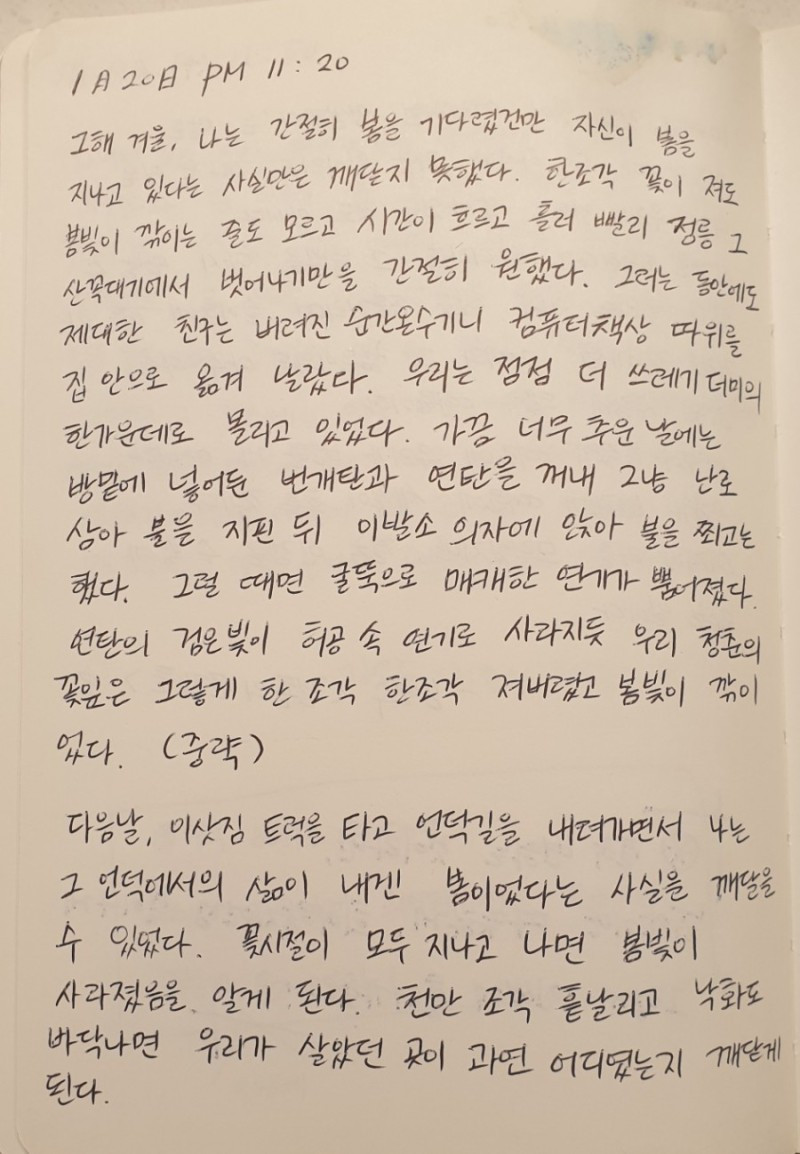 1月20日 PM 11:20
그해 겨울, 나는 간절히 봄을 기다렸건만 자신이 봄을
지나고 있다는 사실만은 깨닫지 못했다. 한조각 꽃이 져도
봄빛이 깎이는 줄도 모르고 시간이 흐르고 흘러 빨리 정릉 그
산꼭대기에서 벗어나기만을 간절히 원했다. 그러는 동안에도
제대한 친구는 버려진 순간온수기니 컴퓨터책상 따위를
집 안으로 옮겨 날랐다. 우리는 점점 더 쓰레기 더미의
한가운데로 몰리고 있었다. 가끔 너무 추운 날에는
방밑에 넣어둔 번개탄과 연탄을 꺼내 그냥 난로
삼아 불을 지핀 뒤 이발소 의자에 앉아 불을 쬐고는
했다. 그럴 때면 굴뚝으로 매캐한 연기가 뿜어졌다.
연탄의 검은빛이 허공 속 연기로 사라지듯 우리 청춘의
꽃잎은 그렇게 한 조각 한조각 져버렸고 봄빛이 깎이
었다. (중략)
다음날, 이삿짐 트럭을 타고 언덕길을 내려가면서 나는
그 언덕에서의 삶이 내겐 봄이었다는 사실을 깨달을
수 있었다. 꽃시절이 모두 지나고 나면 봄빛이
사라졌음을 알게 된다. 천만 조각 흩날리고 낙화도
바닥나면 우리가 살았던 곳이 과연 어디였는지 깨닫게
된다.